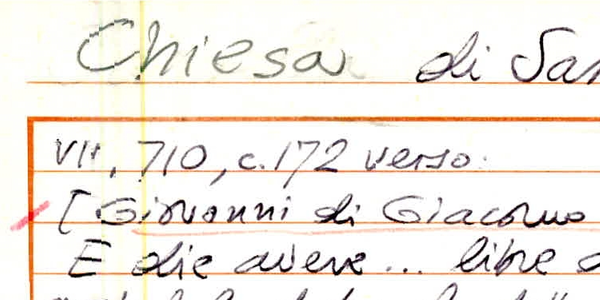 Chiesa di San
VII, 710, c. 172 verso:
[Giovanni di Giacomo
E die avere... libre